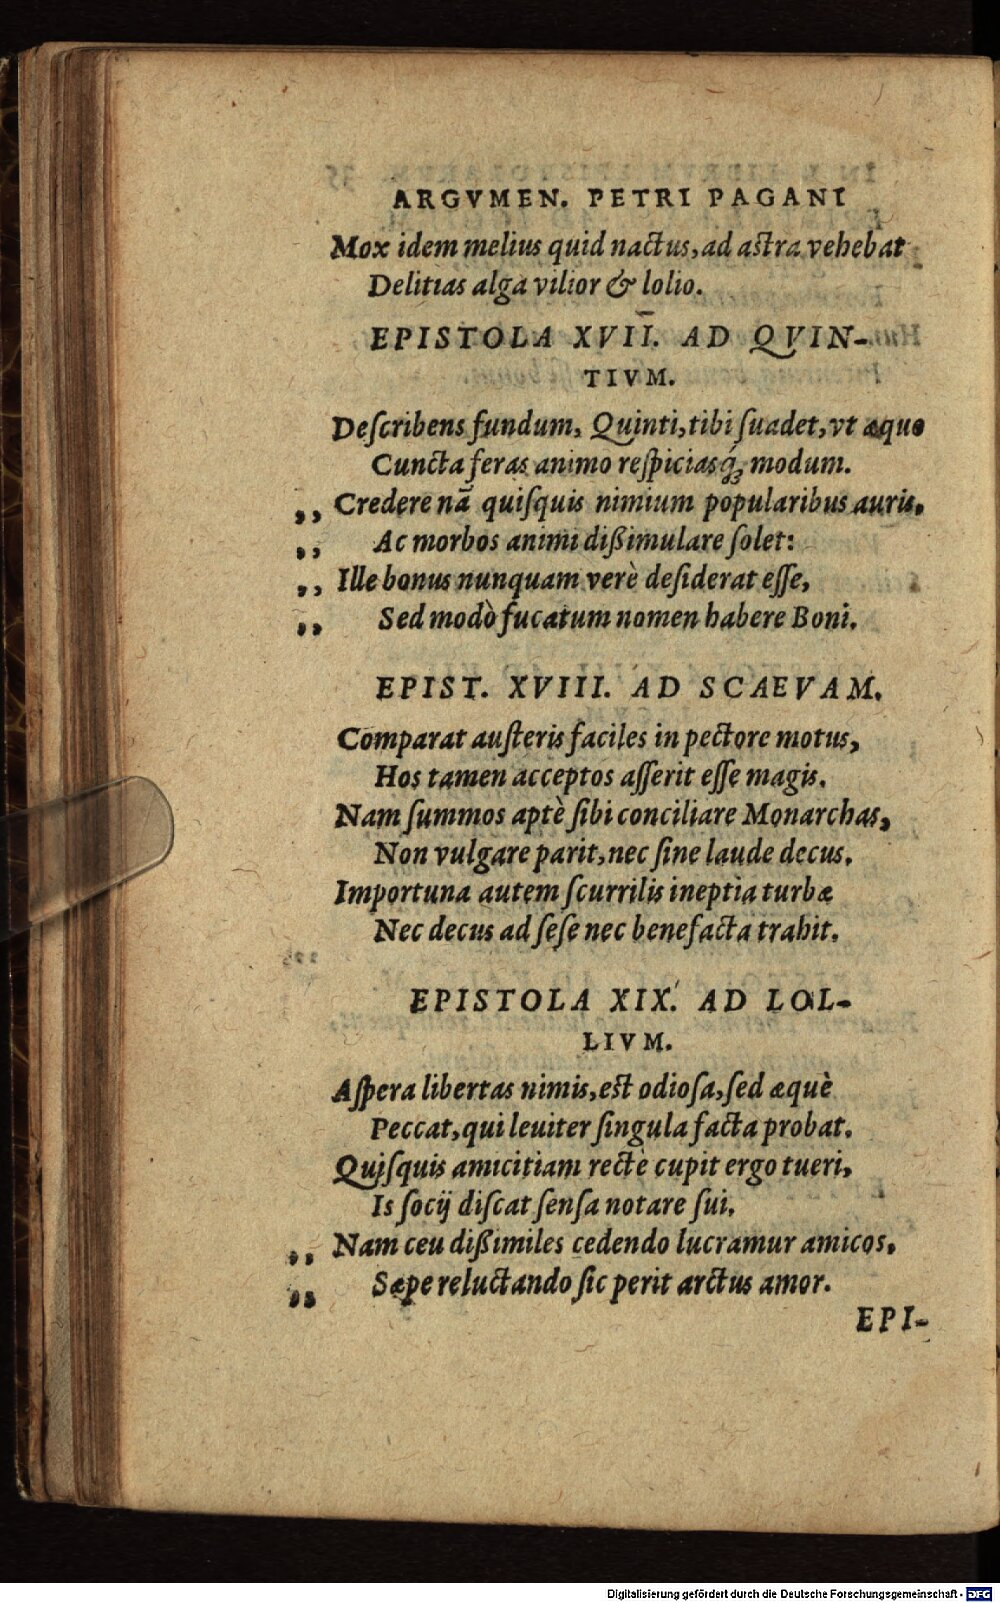 ARGVMEN. PETRI PAGANI
Mox idem melius quid nactus, ad astra vehebat
Delitias alga vilior & lolio.
EPISTOLA XVII. AD QVIN-
TIVM.
Deſcribens fundum, Quinti, tibi ſuadet, vt æquo
Cuncta feras animo reſpiciasq́ꝫ modum.
,, Credere nā quiſquis nimium popularibus auris,
,, Ac morbos animi dißimulare ſolet:
,, Ille bonus nunquam verè deſiderat eſſe,
,, Sed modò fucatum nomen habere Boni.
EPIST. XVIII. AD SCAEVAM.
Comparat auſteris faciles in pectore motus,
Hos tamen acceptos aſſerit eſſe magis.
Nam ſummos aptè ſibi conciliare Monarchas,
Non vulgare parit, nec ſine laude decus.
Importuna autem ſcurrilis ineptia turbæ
Nec decus ad ſeſe nec benefacta trahit.
EPISTOLA XIX. AD LOL-
LIVM.
Aſpera libertas nimis, est odioſa, ſed æquè
Peccat, qui leuiter ſingula facta probat.
Quiſquis amicitiam rectè cupit ergo tueri,
Is ſocij diſcat ſenſa notare ſui.
,, Nam ceu dißimiles cedendo lucramur amicos,
,, Sæpe reluctando ſic perit arctus amor.
EPI-
Digitalisierung gefördert durch die Deutsche Forschungsgemeinschaft - DFG